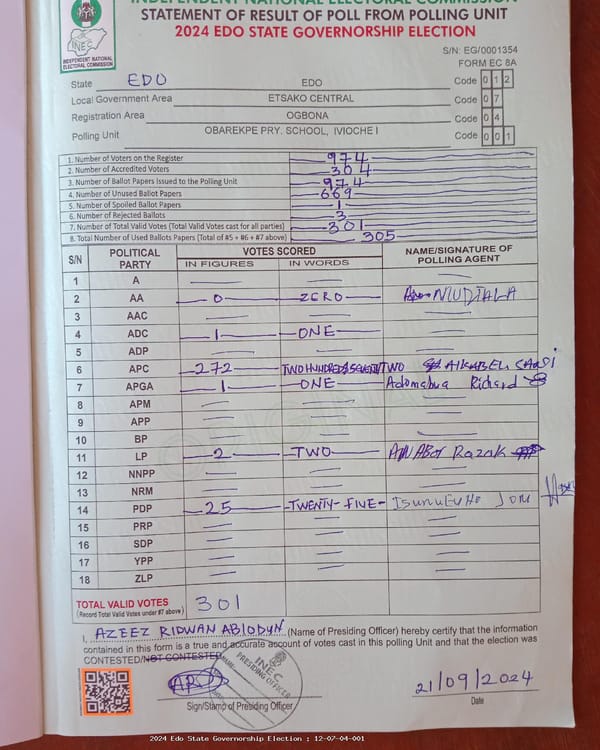 INDEPENDENT NATIONAL ELECTORAL COMMISSION
STATEMENT OF RESULT OF POLL FROM POLLING UNIT
2024 EDO STATE GOVERNORSHIP ELECTION
INEC
INDEPENDENT NATIONAL ELECTORAL COMMISSION
S/N: EG/0001354
FORM EC 8A
State EDO EDO Code 0 1 2
Local Government Area ETSAKO CENTRAL Code 0 7
Registration Area OGBONA Code 0 4
Polling Unit OBAREKPE PRY. SCHOOL, IVIOCHE I Code 0 0 1
1. Number of Voters on the Register 974
2. Number of Accredited Voters 304
3. Number of Ballot Papers Issued to the Polling Unit 974
4. Number of Unused Ballot Papers 669
5. Number of Spoiled Ballot Papers 1
6. Number of Rejected Ballots 3
7. Number of Total Valid Votes (Total Valid Votes cast for all parties) 301
8. Total Number of Used Ballots Papers (Total of #5 + #6 + #7 above) 305
S/N POLITICAL PARTY VOTES SCORED NAME/SIGNATURE OF POLLING AGENT
IN FIGURES IN WORDS
1 A
2 AA 0 ZERO
3 AAC
4 ADC 1 ONE
5 ADP
6 APC 272 TWO HUNDRED SEVENTY TWO
7 APGA 1 ONE Richard
8 APM
9 APP
10 BP
11 LP 2 TWO Razak
12 NNPP
13 NRM
14 PDP 25 TWENTY-FIVE
15 PRP
16 SDP
17 YPP
18 ZLP
TOTAL VALID VOTES 301
(Record Total Valid Votes under #7 above)
I, AZEEZ RIDWAN ABIODUN (Name of Presiding Officer) hereby certify that the information
contained in this form is a true and accurate account of votes cast in this polling Unit and that the election was
CONTESTED/NOT CONTESTED
INEC
PRESIDING OFFICER
21/09/2024
Sign/Stamp of Presiding Officer Date
2024 Edo State Governorship Election : 12-07-04-001